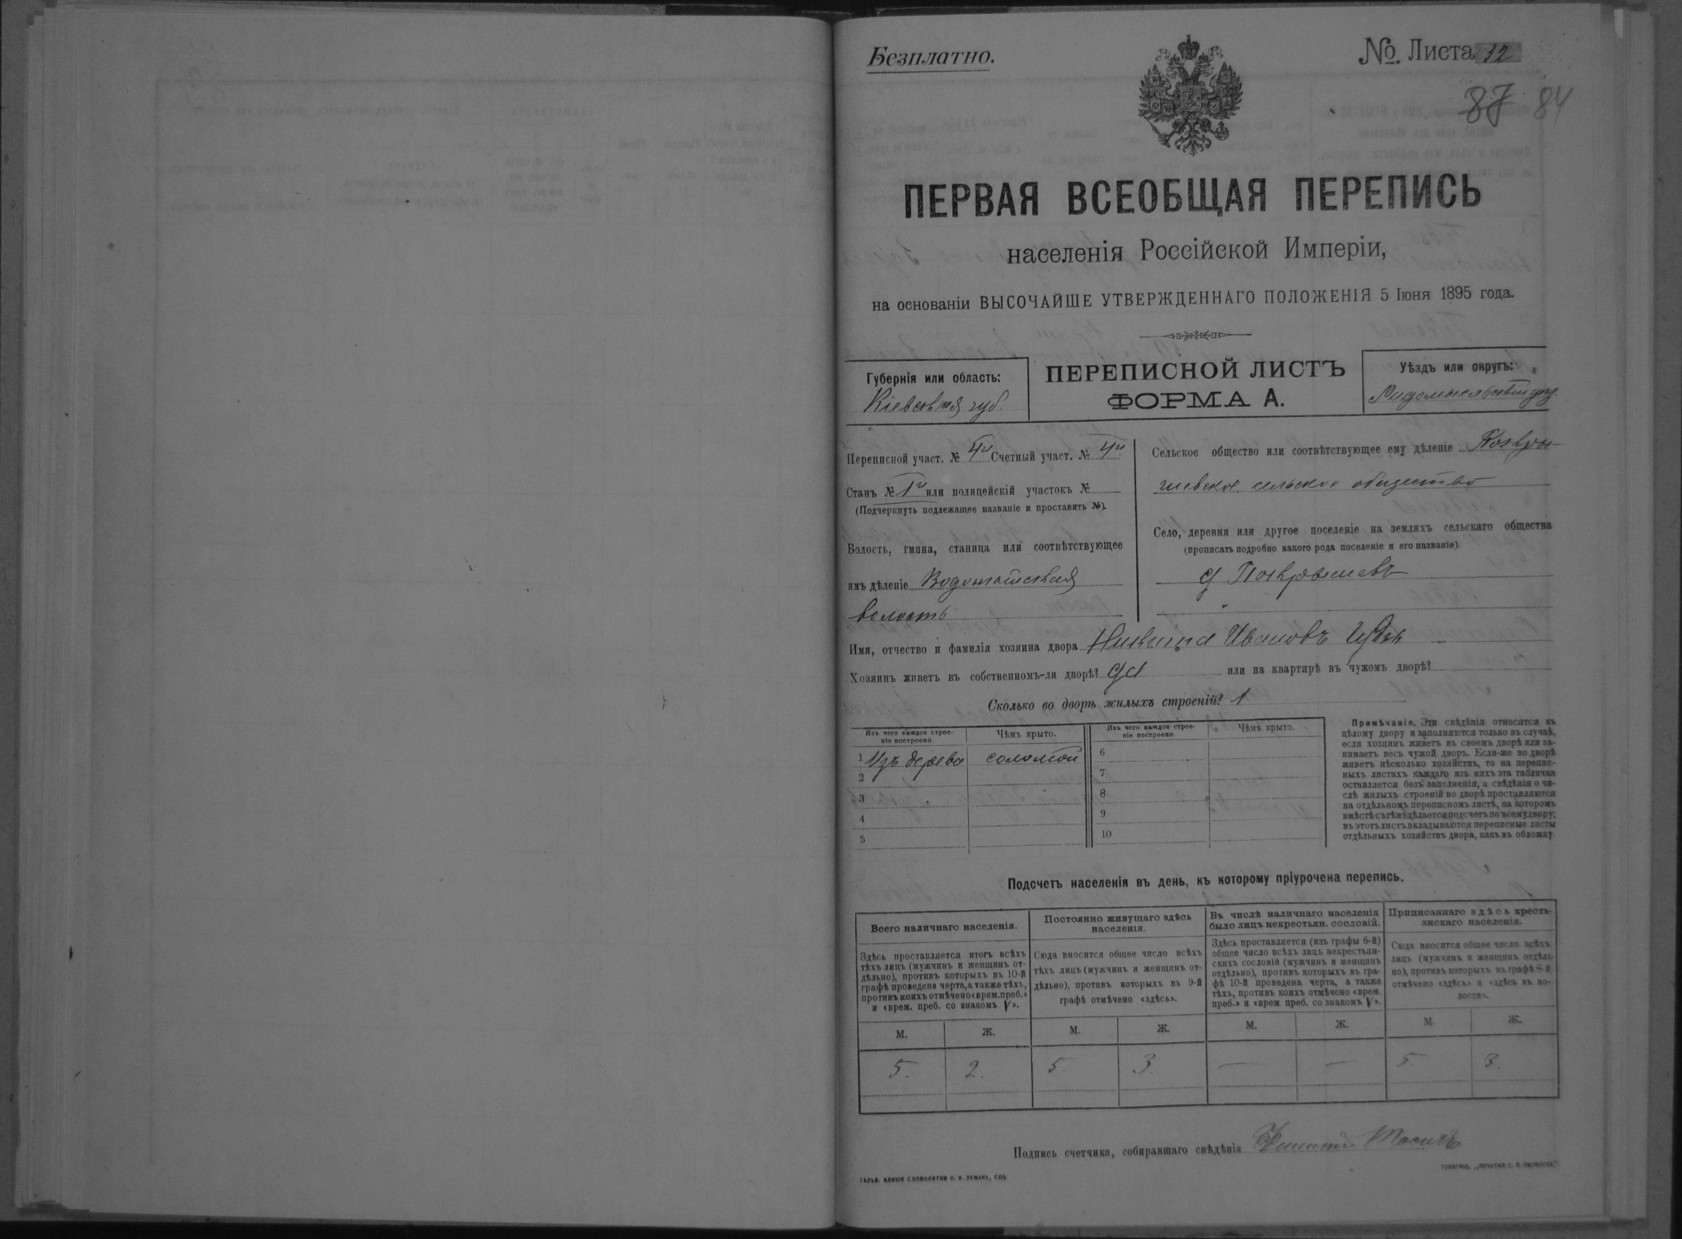 Безплатно.
№ Листа 32
84
ПЕРВАЯ ВСЕОБЩАЯ ПЕРЕПИСЬ
населенія Россійской Имперіи,
на основаніи ВЫСОЧАЙШЕ УТВЕРЖДЕННАГО ПОЛОЖЕНІЯ 5 Іюня 1895 года.
Губернія или область:
Кіевская губ.
ПЕРЕПИСНОЙ ЛИСТЪ
ФОРМА А.
Уѣздъ или округъ:
Переписной участ. № 4й Счетный участ. № 4й
Станъ № 1й или полицейскій участокъ №
(Подчеркнуть подлежащее названіе и проставить №).
Волость, гмина, станица или соотвѣтствующее
имъ дѣленіе
волость
Сельское общество или соотвѣтствующее ему дѣленіе Покры-
шевское сельское общество
Село, деревня или другое поселеніе на земляхъ сельскаго общества
(прописать подробно какого рода поселеніе и его названіе)
д Покрышевъ
Имя, отчество и фамилія хозяина двора Никита Ивановъ
Хозяинъ живетъ въ собственномъ-ли дворѣ? да или на квартирѣ въ чужомъ дворѣ?
Сколько во дворѣ жилыхъ строеній? 1
Изъ чего каждое строе-
ніе построено.
Чѣмъ крыто.
Изъ чего каждое строе-
ніе построено.
Чѣмъ крыто.
1 Изъ дерева соломой 6
2 7
3 8
4 9
5 10
Примѣчаніе. Эти свѣдѣнія относятся къ
цѣлому двору и заполняются только въ случаѣ,
если хозяинъ живетъ въ своемъ дворѣ или за-
нимаетъ весь чужой дворъ. Если-же во дворѣ
живетъ нѣсколько хозяйствъ, то на перепис-
ныхъ листахъ каждаго изъ нихъ эта табличка
оставляется безъ заполненія, а свѣдѣнія о чи-
слѣ жилыхъ строеній во дворѣ проставляются
на отдѣльномъ переписномъ листѣ, на которомъ
вмѣстѣ съ тѣмъ дѣлается подсчетъ по всему двору;
въ этотъ листъ вкладываются переписные листы
отдѣльныхъ хозяйствъ двора, какъ въ обложку
Подсчетъ населенія въ день, къ которому пріурочена перепись.
Всего наличнаго населенія.
Здѣсь проставляется итогъ всѣхъ
тѣхъ лицъ (мужчинъ и женщинъ от-
дѣльно), противъ которыхъ въ 10-й
графѣ проведена черта, а также тѣхъ,
противъ коихъ отмѣчено «врем. преб.»
и «врем. преб. со знакомъ V».
Постоянно живущаго здѣсь
населенія.
Сюда вносится общее число всѣхъ
тѣхъ лицъ (мужчинъ и женщинъ от-
дѣльно), противъ которыхъ въ 9-й
графѣ отмѣчено «здѣсь».
Въ числѣ наличнаго населенія
было лицъ некрестьян. сословій.
Здѣсь проставляется (изъ графы 6-й)
общее число всѣхъ лицъ некрестьян-
скихъ сословій (мужчинъ и женщинъ
отдѣльно), противъ которыхъ въ гра-
фѣ 10-й проведена черта, а также
тѣхъ, противъ коихъ отмѣчено «врем.
преб.» и «врем преб. со знакомъ V».
Приписаннаго здѣсь кресть-
янскаго населенія.
Сюда вносится общее число всѣхъ
лицъ (мужчинъ и женщинъ отдѣль-
но), противъ которыхъ въ графѣ 8-й
отмѣчено «здѣсь» и «здѣсь въ во-
лости».
М. Ж. М. Ж. М. Ж. М. Ж.
5. 2. 5. 3. — — 5 3.
Подпись счетчика, собиравшаго свѣдѣнія